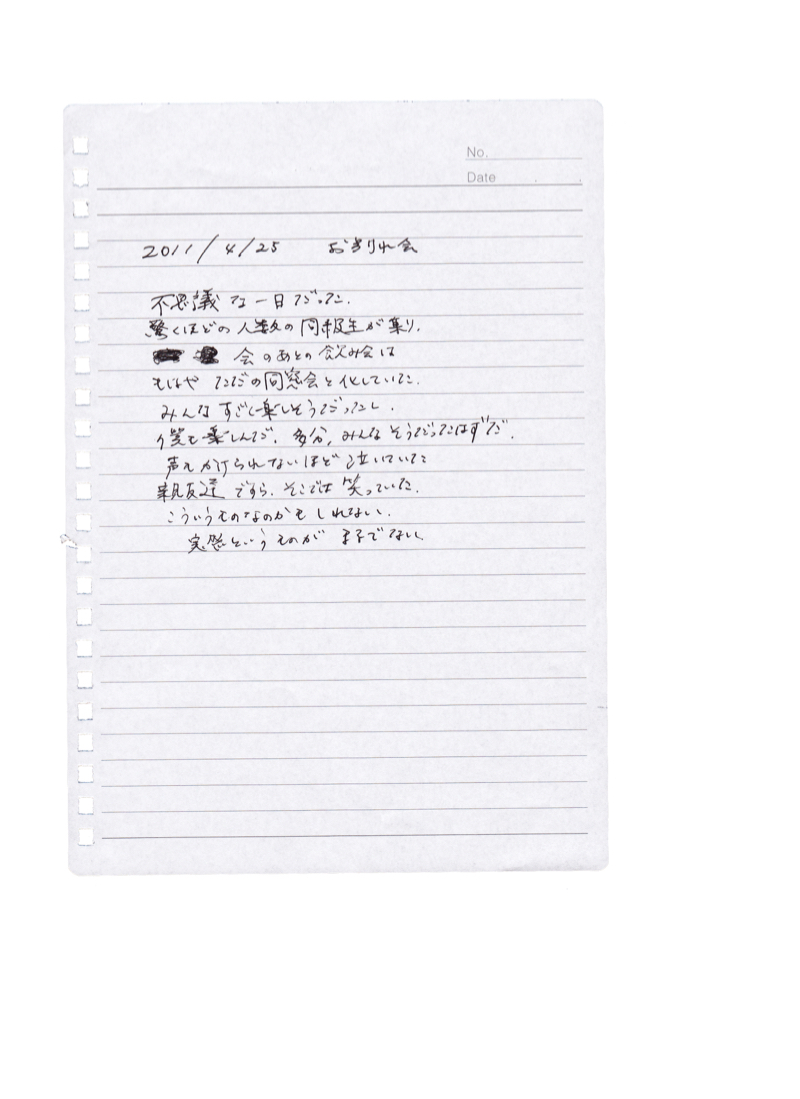 No.
Date
2011/4/25 お別れ会
不思議な一日だった.
驚くほどの人数の同級生が集り.
会のあとの飲み会は
もはやただの同窓会と化していた.
みんなすごく楽しそうだったし.
僕も楽しんだ. 多分, みんなそうだったはずだ.
声もかけられないほど泣いていた
親友達ですら. そこでは笑っていた.
こういうものなのかもしれない.
実感というものがまるでない